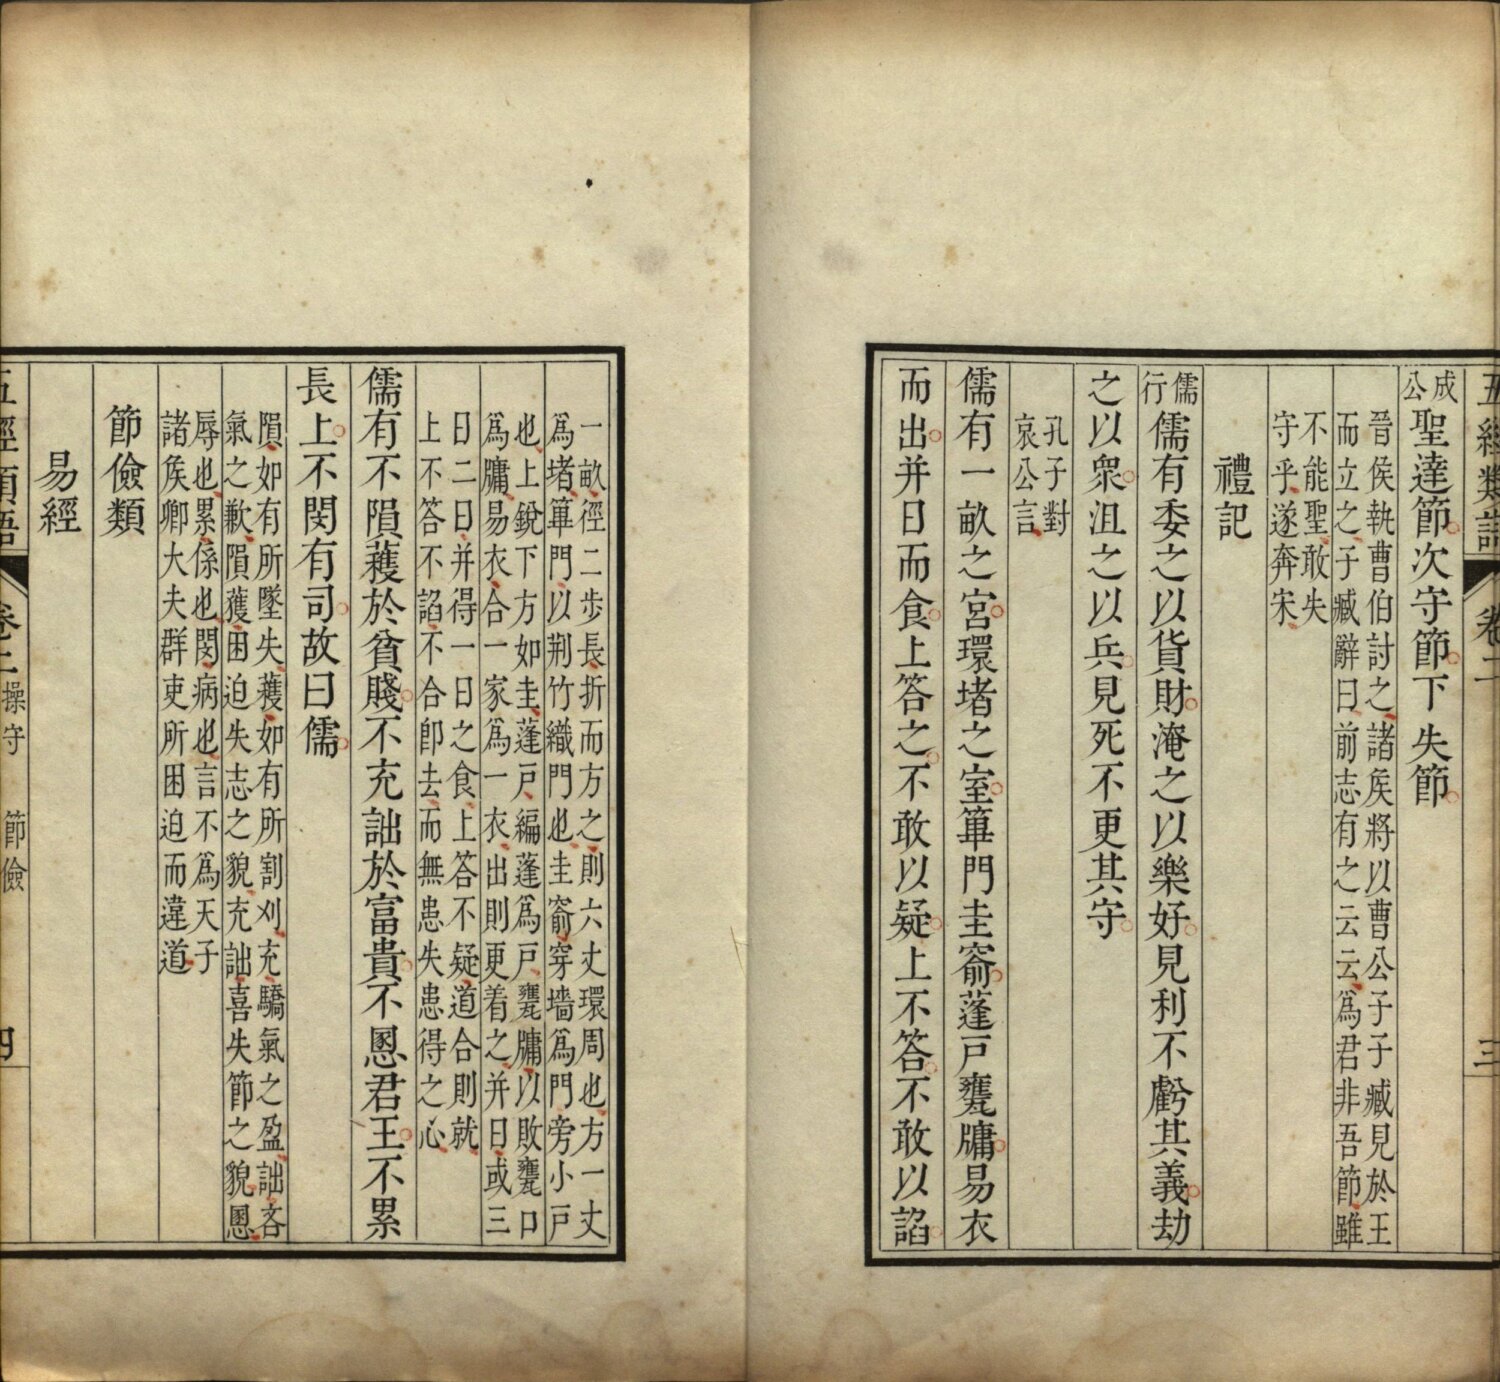 五經類語 卷二 三
成公 聖達節次守節下失節
晉侯執曹伯討之諸矦將以曹公子子臧見於王
而立之子臧辭曰前志有之云云爲君非吾節雖
不能聖敢失
守乎遂奔宋
禮記
儒行 儒有委之以貨財淹之以樂好見利不虧其義劫
之以衆沮之以兵見死不更其守
孔子對
哀公言
儒有一畝之宮環堵之室篳門圭窬蓬戸甕牖易衣
而出并日而食上答之不敢以疑上不答不敢以諂
一畝徑二步長折而方之則六丈環周也方一丈
爲堵篳門以荆竹織門也圭窬穿墻爲門旁小戸
也上銳下方如圭蓬戸編蓬爲戸甕牖以敗甕口
爲牖易衣合一家爲一衣出則更着之并日或三
日二日并得一日之食上答不疑道合則就
上不答不諂不合卽去而無患失患得之心
儒有不隕蒦於貧賤不充詘於富貴不慁君王不累
長上不閔有司故曰儒
隕如有所墜失蒦如有所割刈充驕氣之盈詘吝
氣之歉隕獲困迫失志之貌充詘喜失節之貌慁
辱也累係也閔病也言不爲天子
諸矦卿大夫群吏所困迫而違道
節儉類
易經
五經類語 卷二 操守 節儉 四